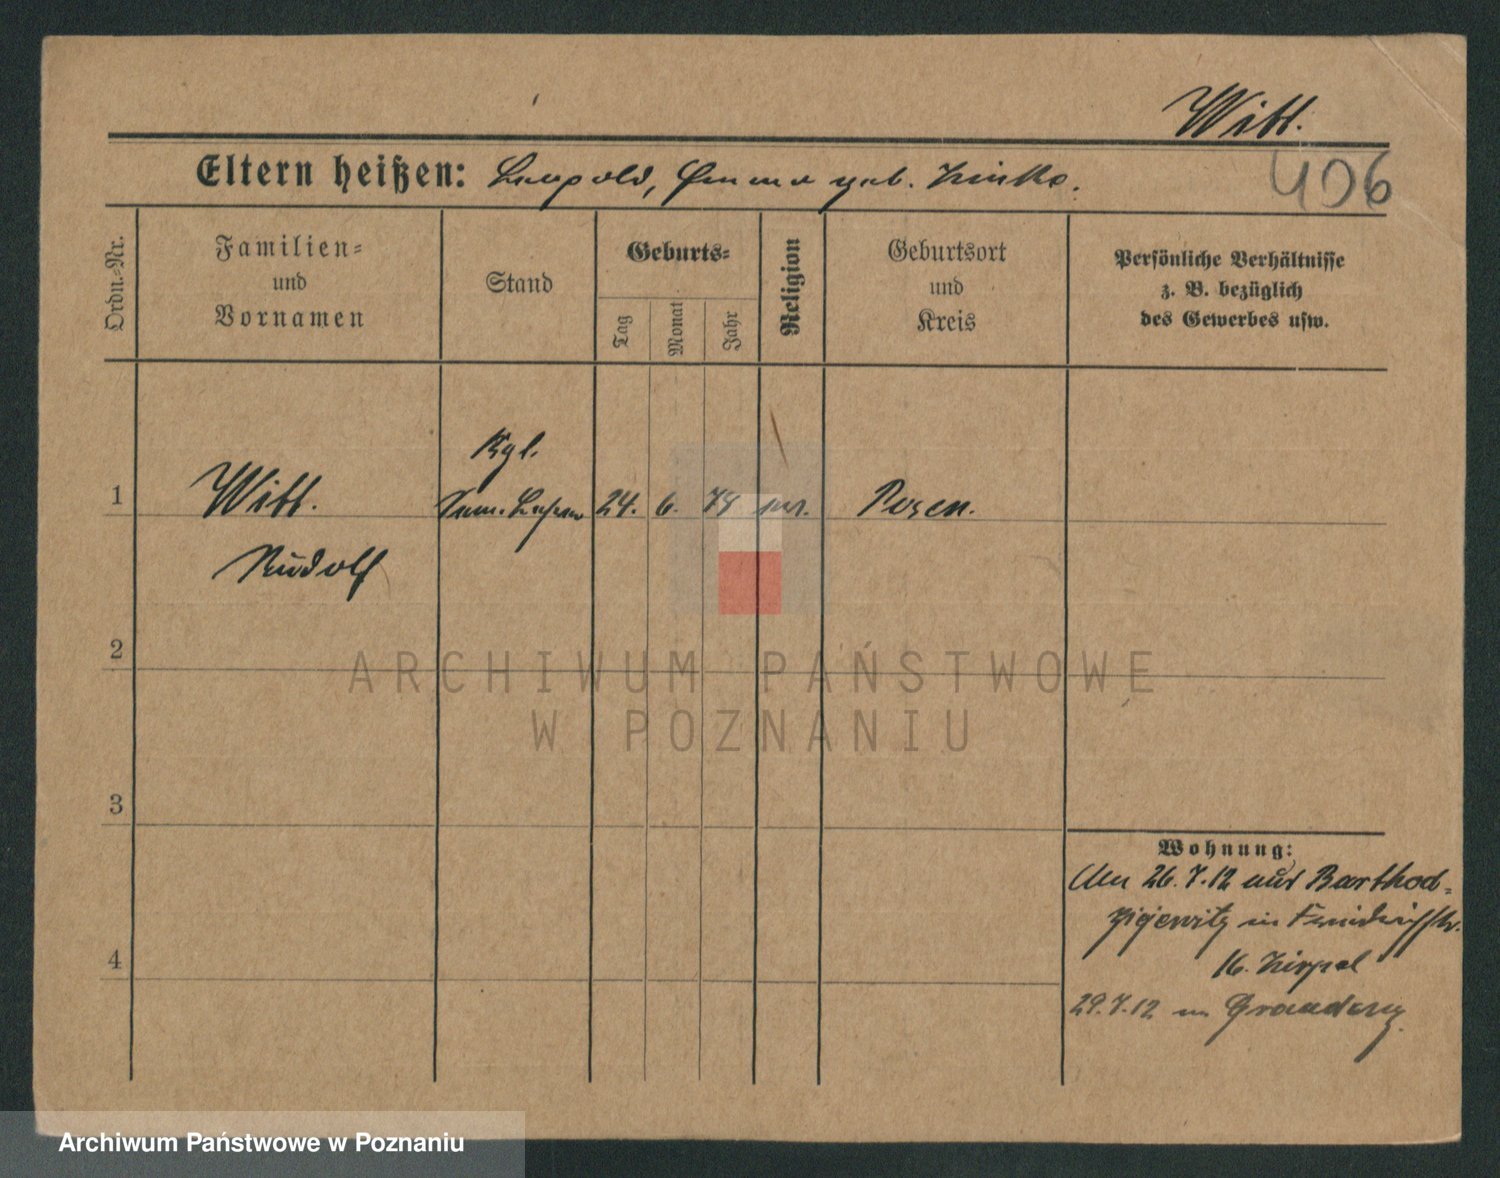 Witt.
Eltern heißen: Leopold, Emma geb. Hinko.
406
Ordn.-Nr.
Familien-
und
Vornamen
Stand
Geburts-
Tag
Monat
Jahr
Religion
Geburtsort
und
Kreis
Persönliche Verhältnisse
z. B. bezüglich
des Gewerbes usw.
Kgl.
1 Witt. Sem. Lehrer 24. 6. 79 Posen.
Rudolf
2
ARCHIWUM PAŃSTWOWE
W POZNANIU
3
Wohnung:
26.7.12 aus Barthod-
ziejewitz in
4
16.
29.7.12 in Graudenz.
Archiwum Państwowe w Poznaniu